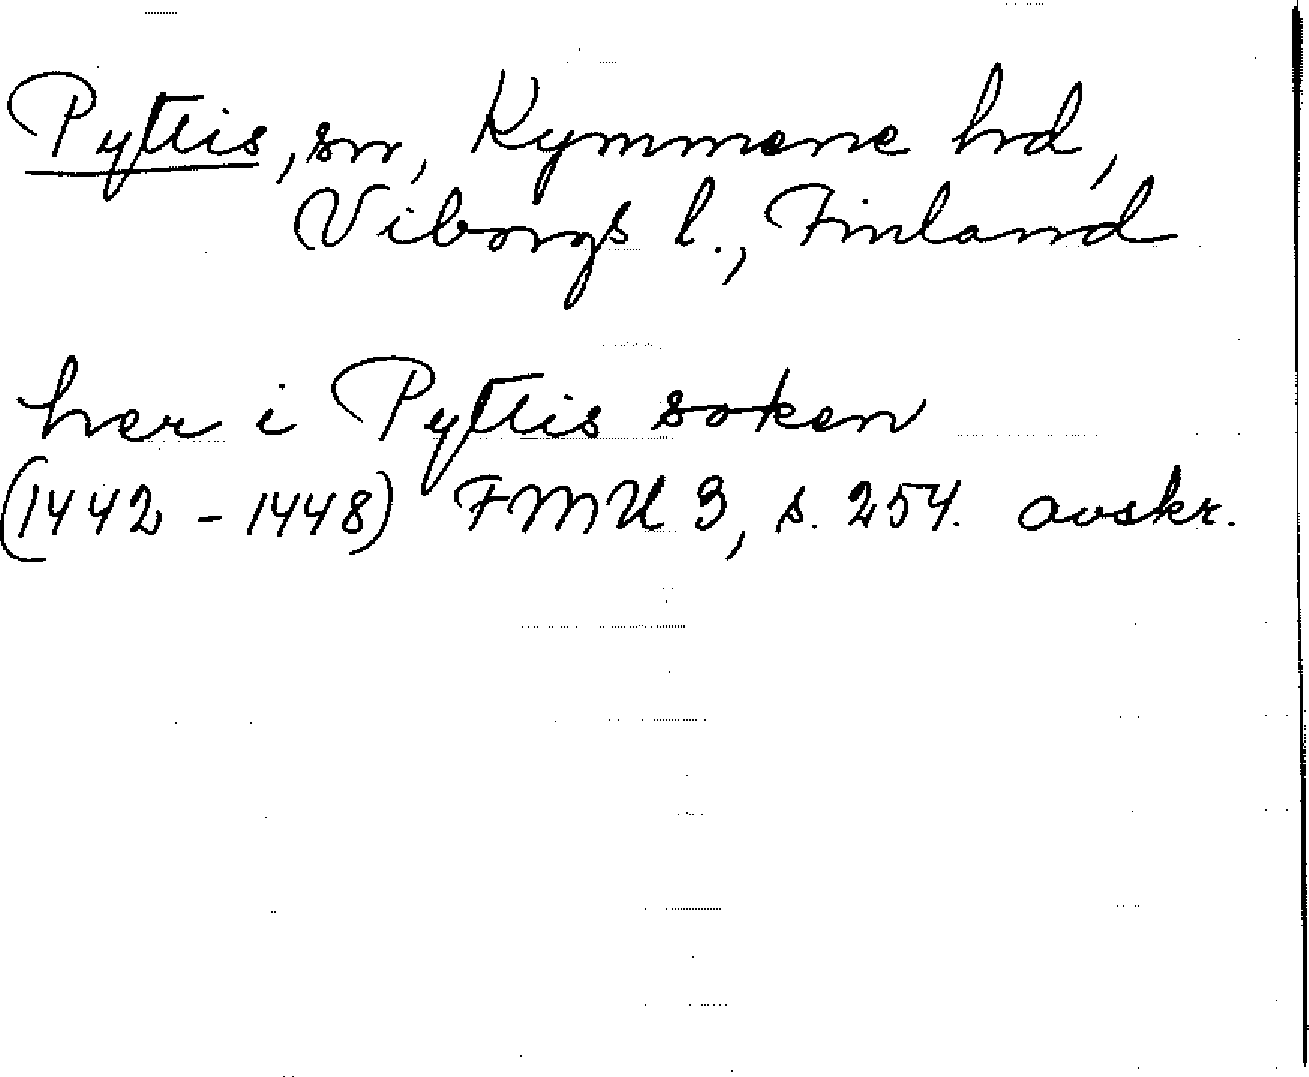 Pyttis, sn, Kymmene hrd,
Viborgs l., Finland
her i Pyttis soken
(1442 - 1448) FMU 3, s. 254. avskr.